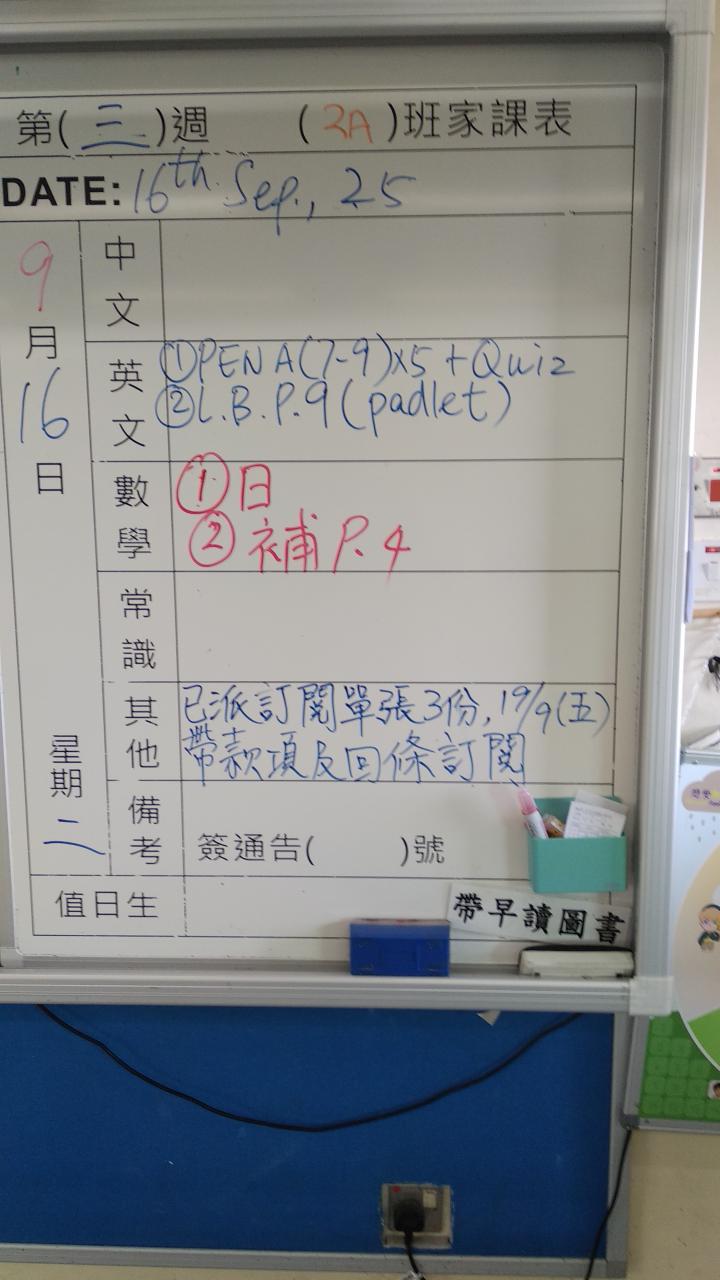 第(三)週 (3A)班家課表
DATE: 16th Sep., 25
9月16日 星期二
中文
英文 ①PEN A(7-9)x5 + Quiz
②L.B. P.9 (padlet)
數學 ①日
②補 P.4
常識
其他 已派訂閱單張3份, 19/9(五)
帶款項及回條訂閱
備考 簽通告( )號
值日生
帶早讀圖書